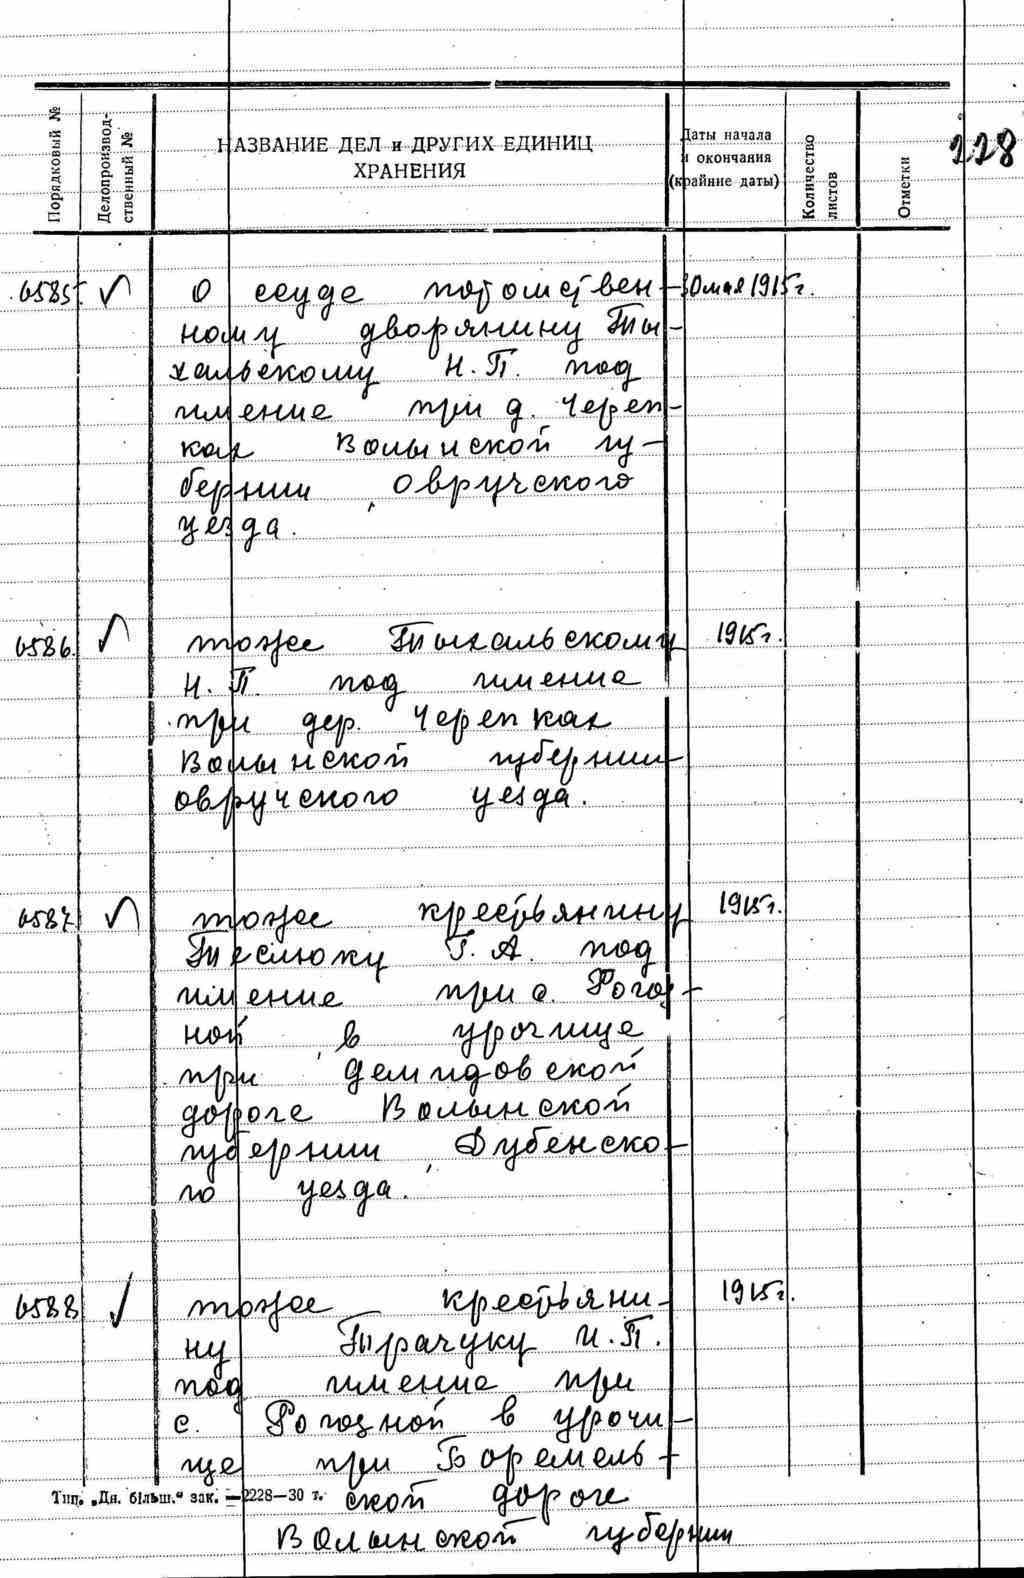 228
Порядковый №
Делопроизвод-
ственный №
НАЗВАНИЕ ДЕЛ и ДРУГИХ ЕДИНИЦ
ХРАНЕНИЯ
Даты начала
и окончания
(крайние даты)
Количество
листов
Отметки
6585. О ссуде потомствен- 30 мая 1915 г.
ному дворянину Ты-
хальскому Н.П. под
имение при д. Череп-
ках Волынской гу-
бернии, Овручского
уезда.
6586. тоже Тыхальскому 1915 г.
Н.П. под имение
при дер. Черепках
Волынской губернии
овручского уезда.
6587. тоже крестьянину 1915 г.
Теслюку Г.А. под
имение при с. Рогоз-
ной, в урочище
при Демидовской
дороге Волынской
губернии, Дубенско-
го уезда.
6588 тоже крестьяни- 1915 г.
ну Трачуку И.П.
под имение при
с. Рогозной в урочи-
ще при Боремель-
ской дороге
Волынской губернии
Тип. „Дн. більш.“ зак. —2228—30 т.